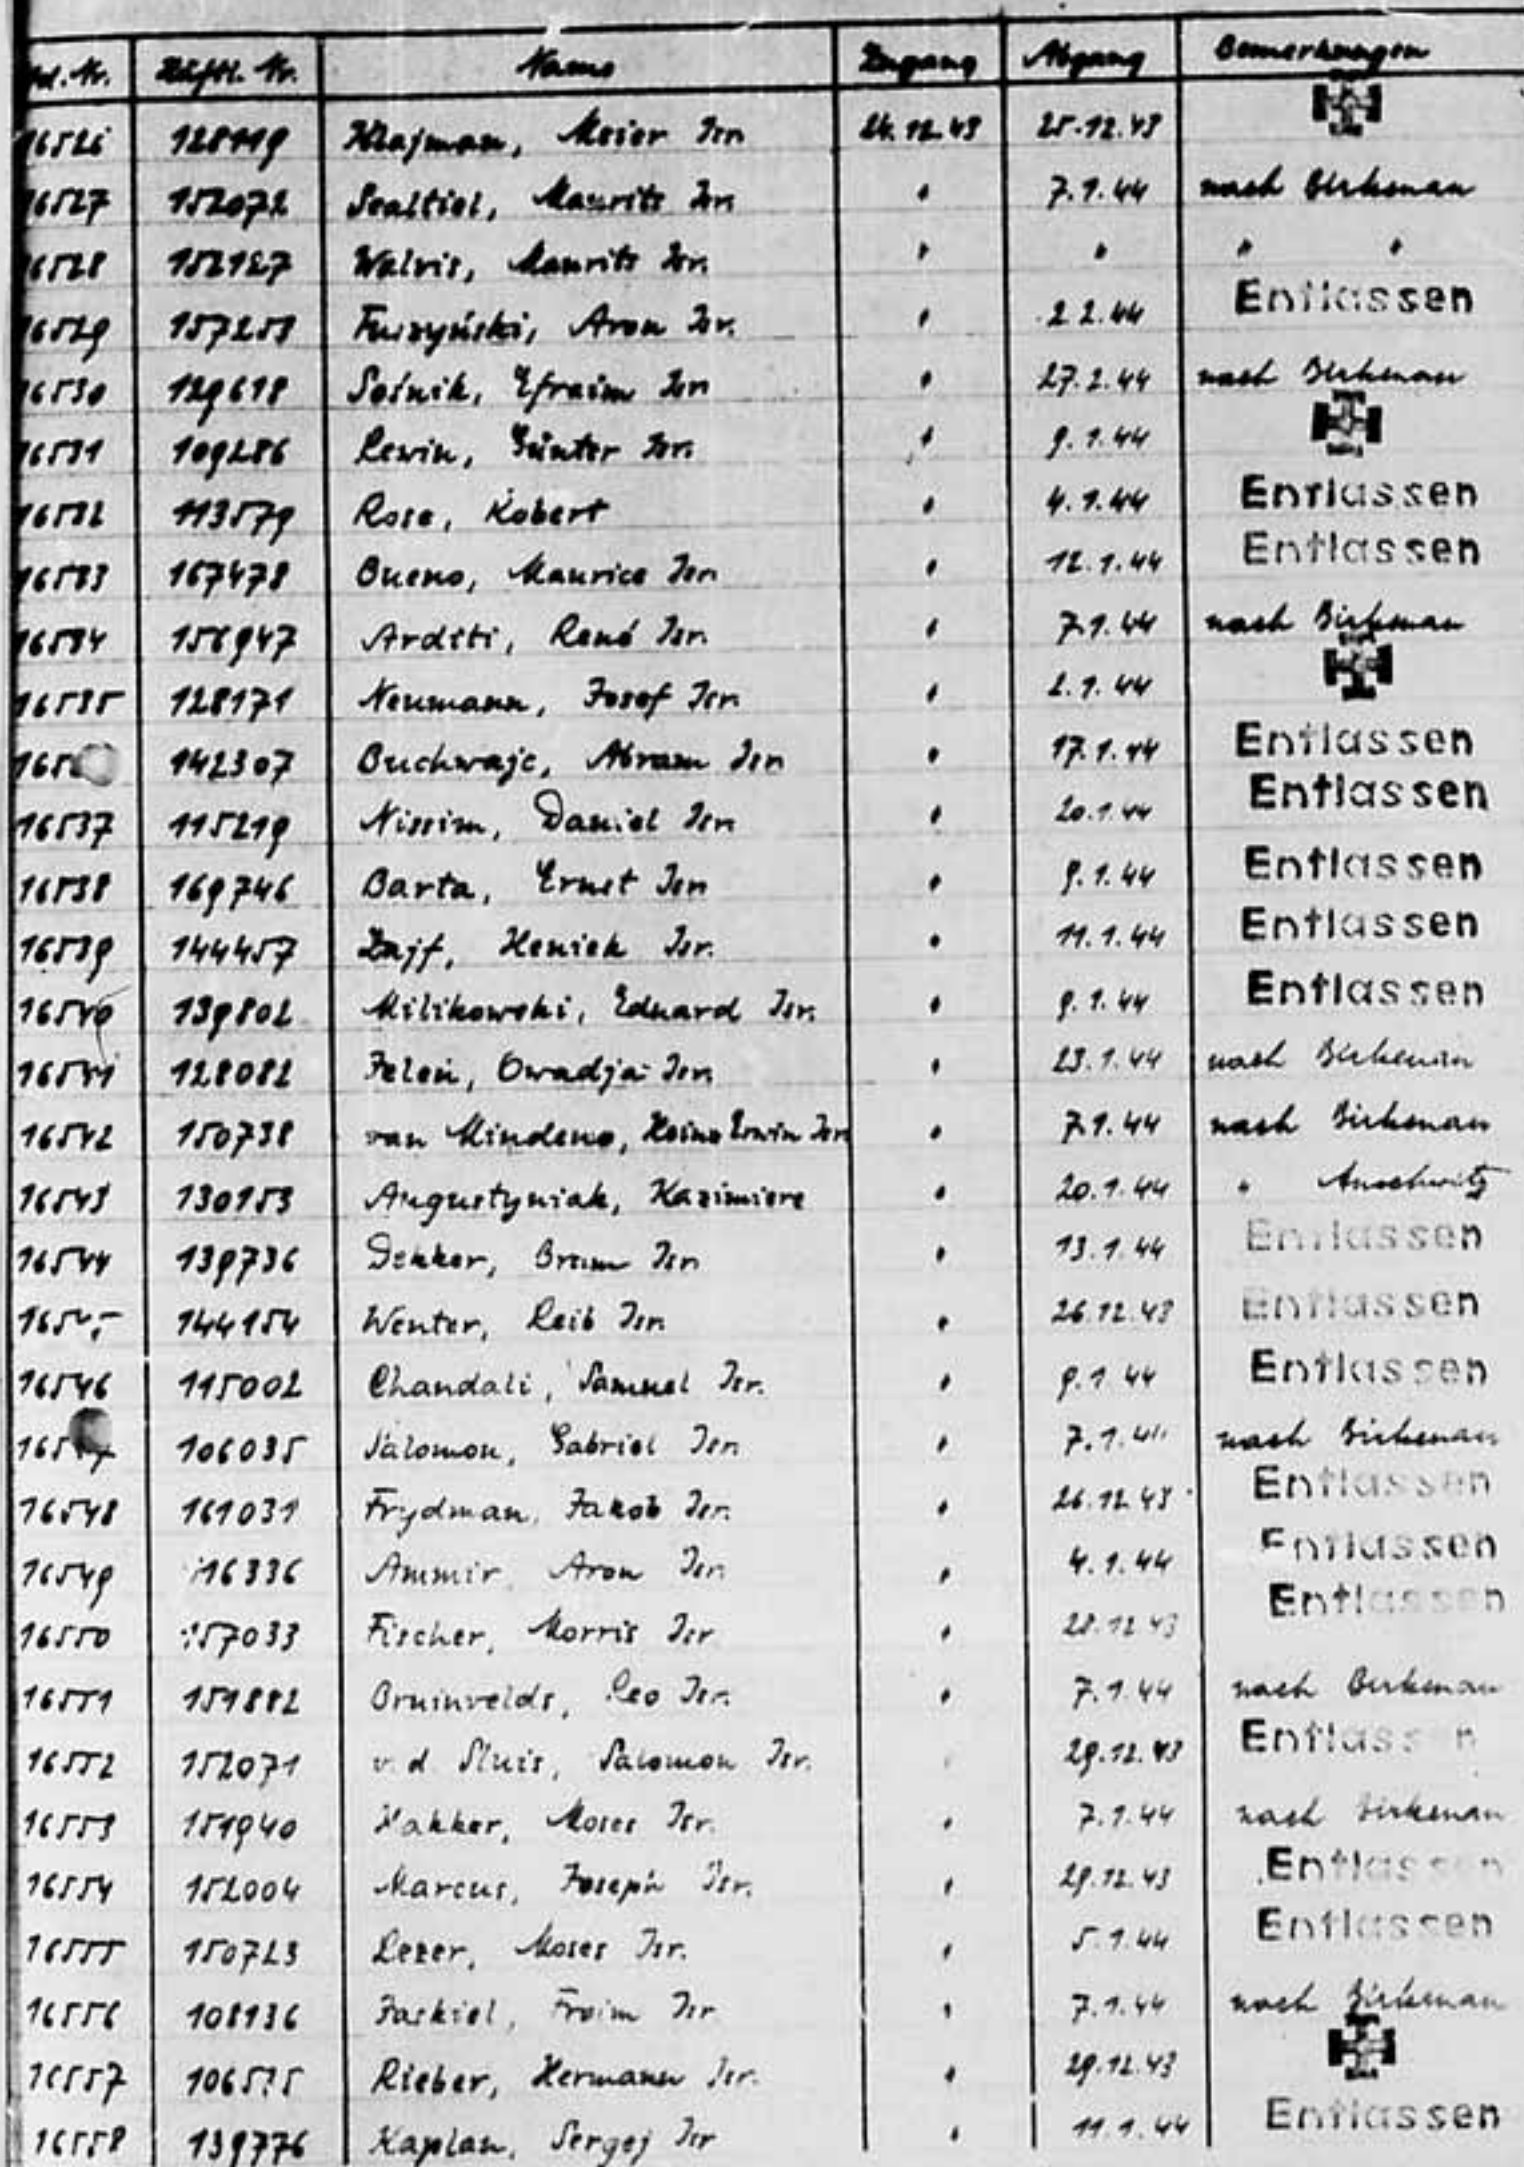 Lfd. Nr. Häftl. Nr. Name Zugang Abgang Bemerkungen
16526 128119 Klajman, Meier Isr. 24.12.43 25.12.43
16527 152072 Sealtiel, Maurits Isr. " 7.1.44 nach Birkenau
16528 152127 Walvis, Maurits Isr. " " " "
16529 157253 Aron Isr. " 2.2.44 Entlassen
16530 129618 Sośnik, Efraim Isr. " 27.2.44 nach Birkenau
16531 109286 Lewin, Günter Isr. " 9.1.44
16532 113579 Rose, Robert " 4.1.44 Entlassen
16533 167478 Bueno, Maurice Isr. " 12.1.44 Entlassen
16534 156947 Arditti, René Isr. " 7.1.44 nach Birkenau
16535 128171 Neumann, Josef Isr. " 2.1.44
165 142307 Buchwajc, Abram Isr. " 17.1.44 Entlassen
16537 115219 Nissim, Daniel Isr. " 20.1.44 Entlassen
16538 169746 Barta, Ernst Isr. " 9.1.44 Entlassen
16539 144457 Zajf, Heniek Isr. " 11.1.44 Entlassen
16540 139802 Milikowski, Eduard Isr. " 9.1.44 Entlassen
16541 128082 Owadja Isr. " 23.1.44 nach Birkenau
16542 150738 van Mindeno, Heinz Erwin Isr. " 7.1.44 nach Birkenau
16543 130153 Augustyniak, Kazimierz " 20.1.44 " Auschwitz
16544 139736 Dekker, Bram Isr. " 13.1.44 Entlassen
16545 144154 Wenter, Leib Isr. " 26.12.43 Entlassen
16546 115002 Chandali, Samuel Isr. " 9.1.44 Entlassen
16547 106035 Salomon, Gabriel Isr. " 7.1.44 nach Birkenau
16548 161031 Frydman, Jakob Isr. " 26.12.43 Entlassen
16549 116336 Ammir, Aron Isr. " 4.1.44 Entlassen
16550 157033 Fischer, Morris Isr. " 28.12.43 Entlassen
16551 151882 Bruinvelds, Leo Isr. " 7.1.44 nach Birkenau
16552 152071 v. d. Sluis, Salomon Isr. 29.12.43 Entlassen
16553 151940 Hakker, Moses Isr. " 7.1.44 nach Birkenau
16554 152004 Marcus, Joseph Isr. " 29.12.43 Entlassen
16555 150723 Lezer, Moses Isr. " 5.1.44 Entlassen
16556 108136 Jaskiel, Froim Isr. " 7.1.44 nach Birkenau
16557 Rieber, Hermann Isr. " 29.12.43
16558 139776 Kaplan, Sergej Isr. " 11.1.44 Entlassen